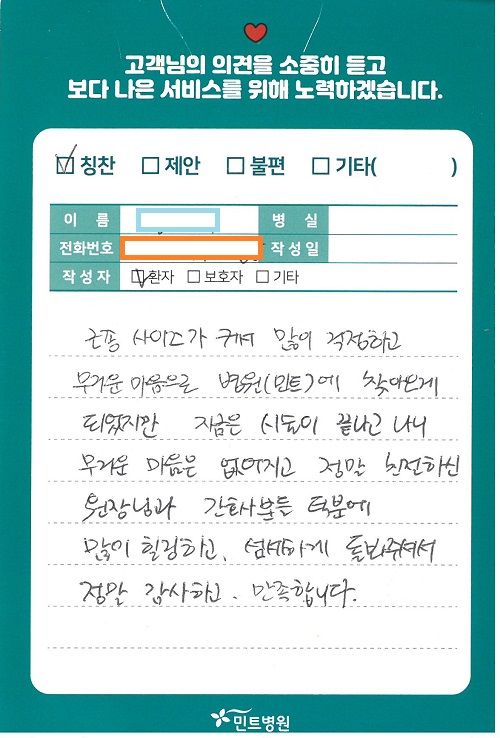 고객님의 의견을 소중히 듣고
보다 나은 서비스를 위해 노력하겠습니다.
칭찬 제안 불편 기타( )
이 름 병 실
전화번호 작성일
작성자 환자 보호자 기타
근종 사이즈가 커서 많이 걱정하고
무거운 마음으로 병원(민트)에 찾아오게
되었지만 지금은 시술이 끝나고 나니
무거운 마음은 없어지고 정말 친절하신
원장님과 간호사분들 덕분에
많이 힐링하고, 섬세하게 돌봐주셔서
정말 감사하고. 만족합니다.
민트병원